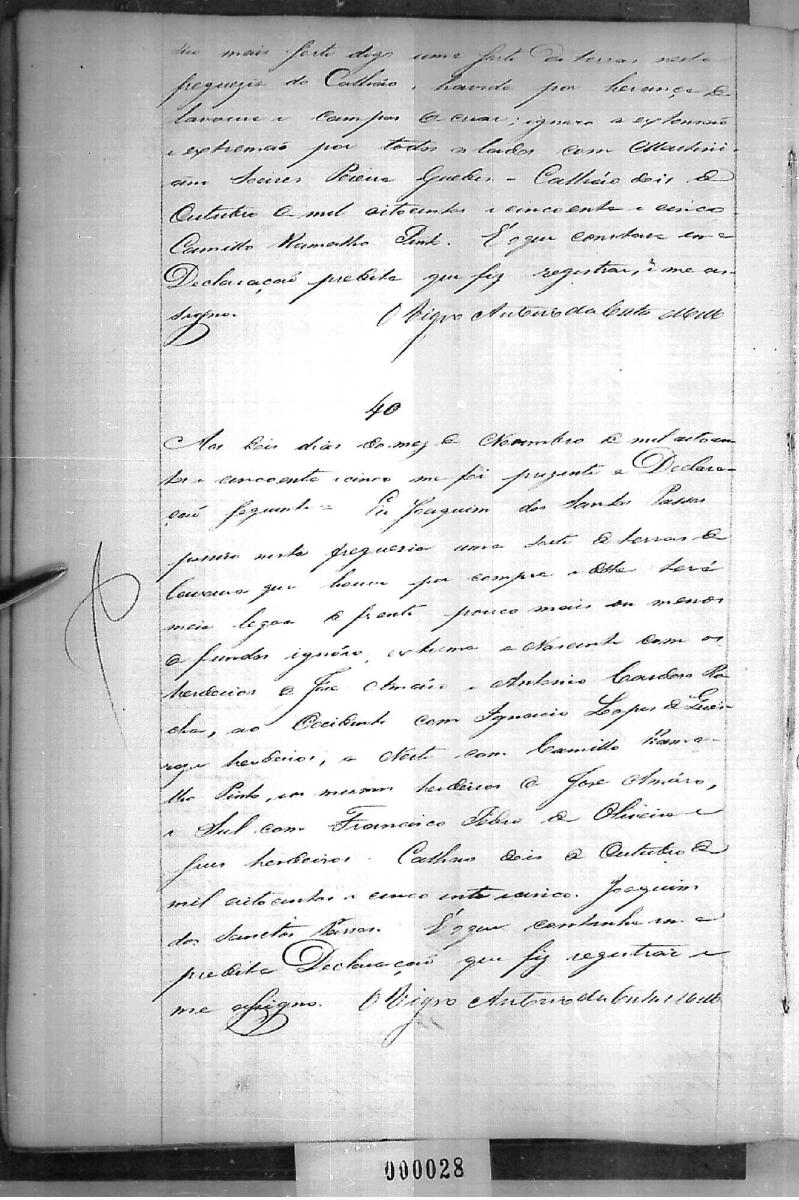 mais forte digo uma parte de terras nesta
freguezia do Calháo, havida por herança de
lavoura e campos de criar; ignoro a extensão
e extremão por todos os lados com Martini-
ano Soares Pereira Guedes - Calháo dois de
Outubro de mil oitocentos e cincoenta e cinco
Camillo Ramalho Pinto. É o que constava em a
Declaração predita que fiz registrar, e me as-
signo. O Vigro Antonio da Costa
40
Aos dois dias do mez de Novembro de mil oitocen-
tos e cincoenta e cinco me foi prezente a Declara-
çaõ seguinte = Eu Joaquim dos Santos Passos
possuo nesta freguezia uma sorte de terras de
lavoura que houve por compra e esta terá
meia legoa de frente pouco mais ou menos
e fundos ignóro, extrema a Nascente com os
herdeiros de Jose Amáro e Antonio Cardoso Ro-
cha, ao Occidente com Ignacio Lopes de
herdeiros, a Norte com Camillo Rama-
lho Pinto, e os mesmos herdeiros de Jose Amáro,
e Sul com Francisco Pedro de Oliveira e
seus herdeiros. Calhao dois de Outubro de
mil oitocentos e cincoenta e cinco. Joaquim
dos Sanctos Passos. É o que continha em a
predita Declaraçaõ que fiz registrar e
me assigno. O Vigro Antonio da Costa
000028